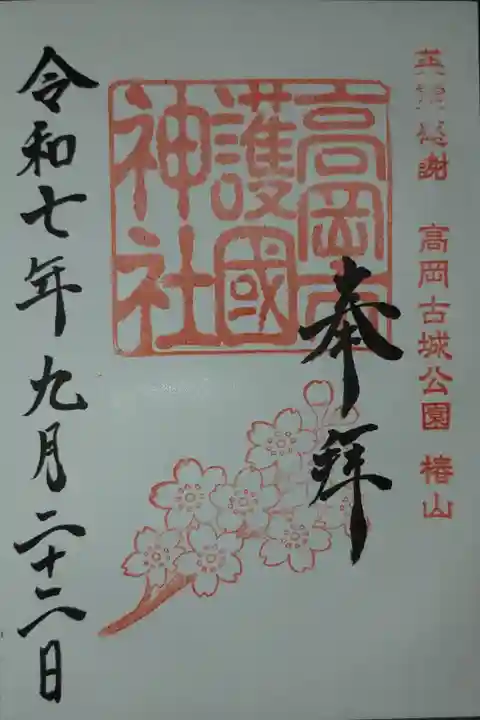 英霊感謝 高岡古城公園 椿山
高岡市
護國
神社
奉拝
令和七年九月二十二日